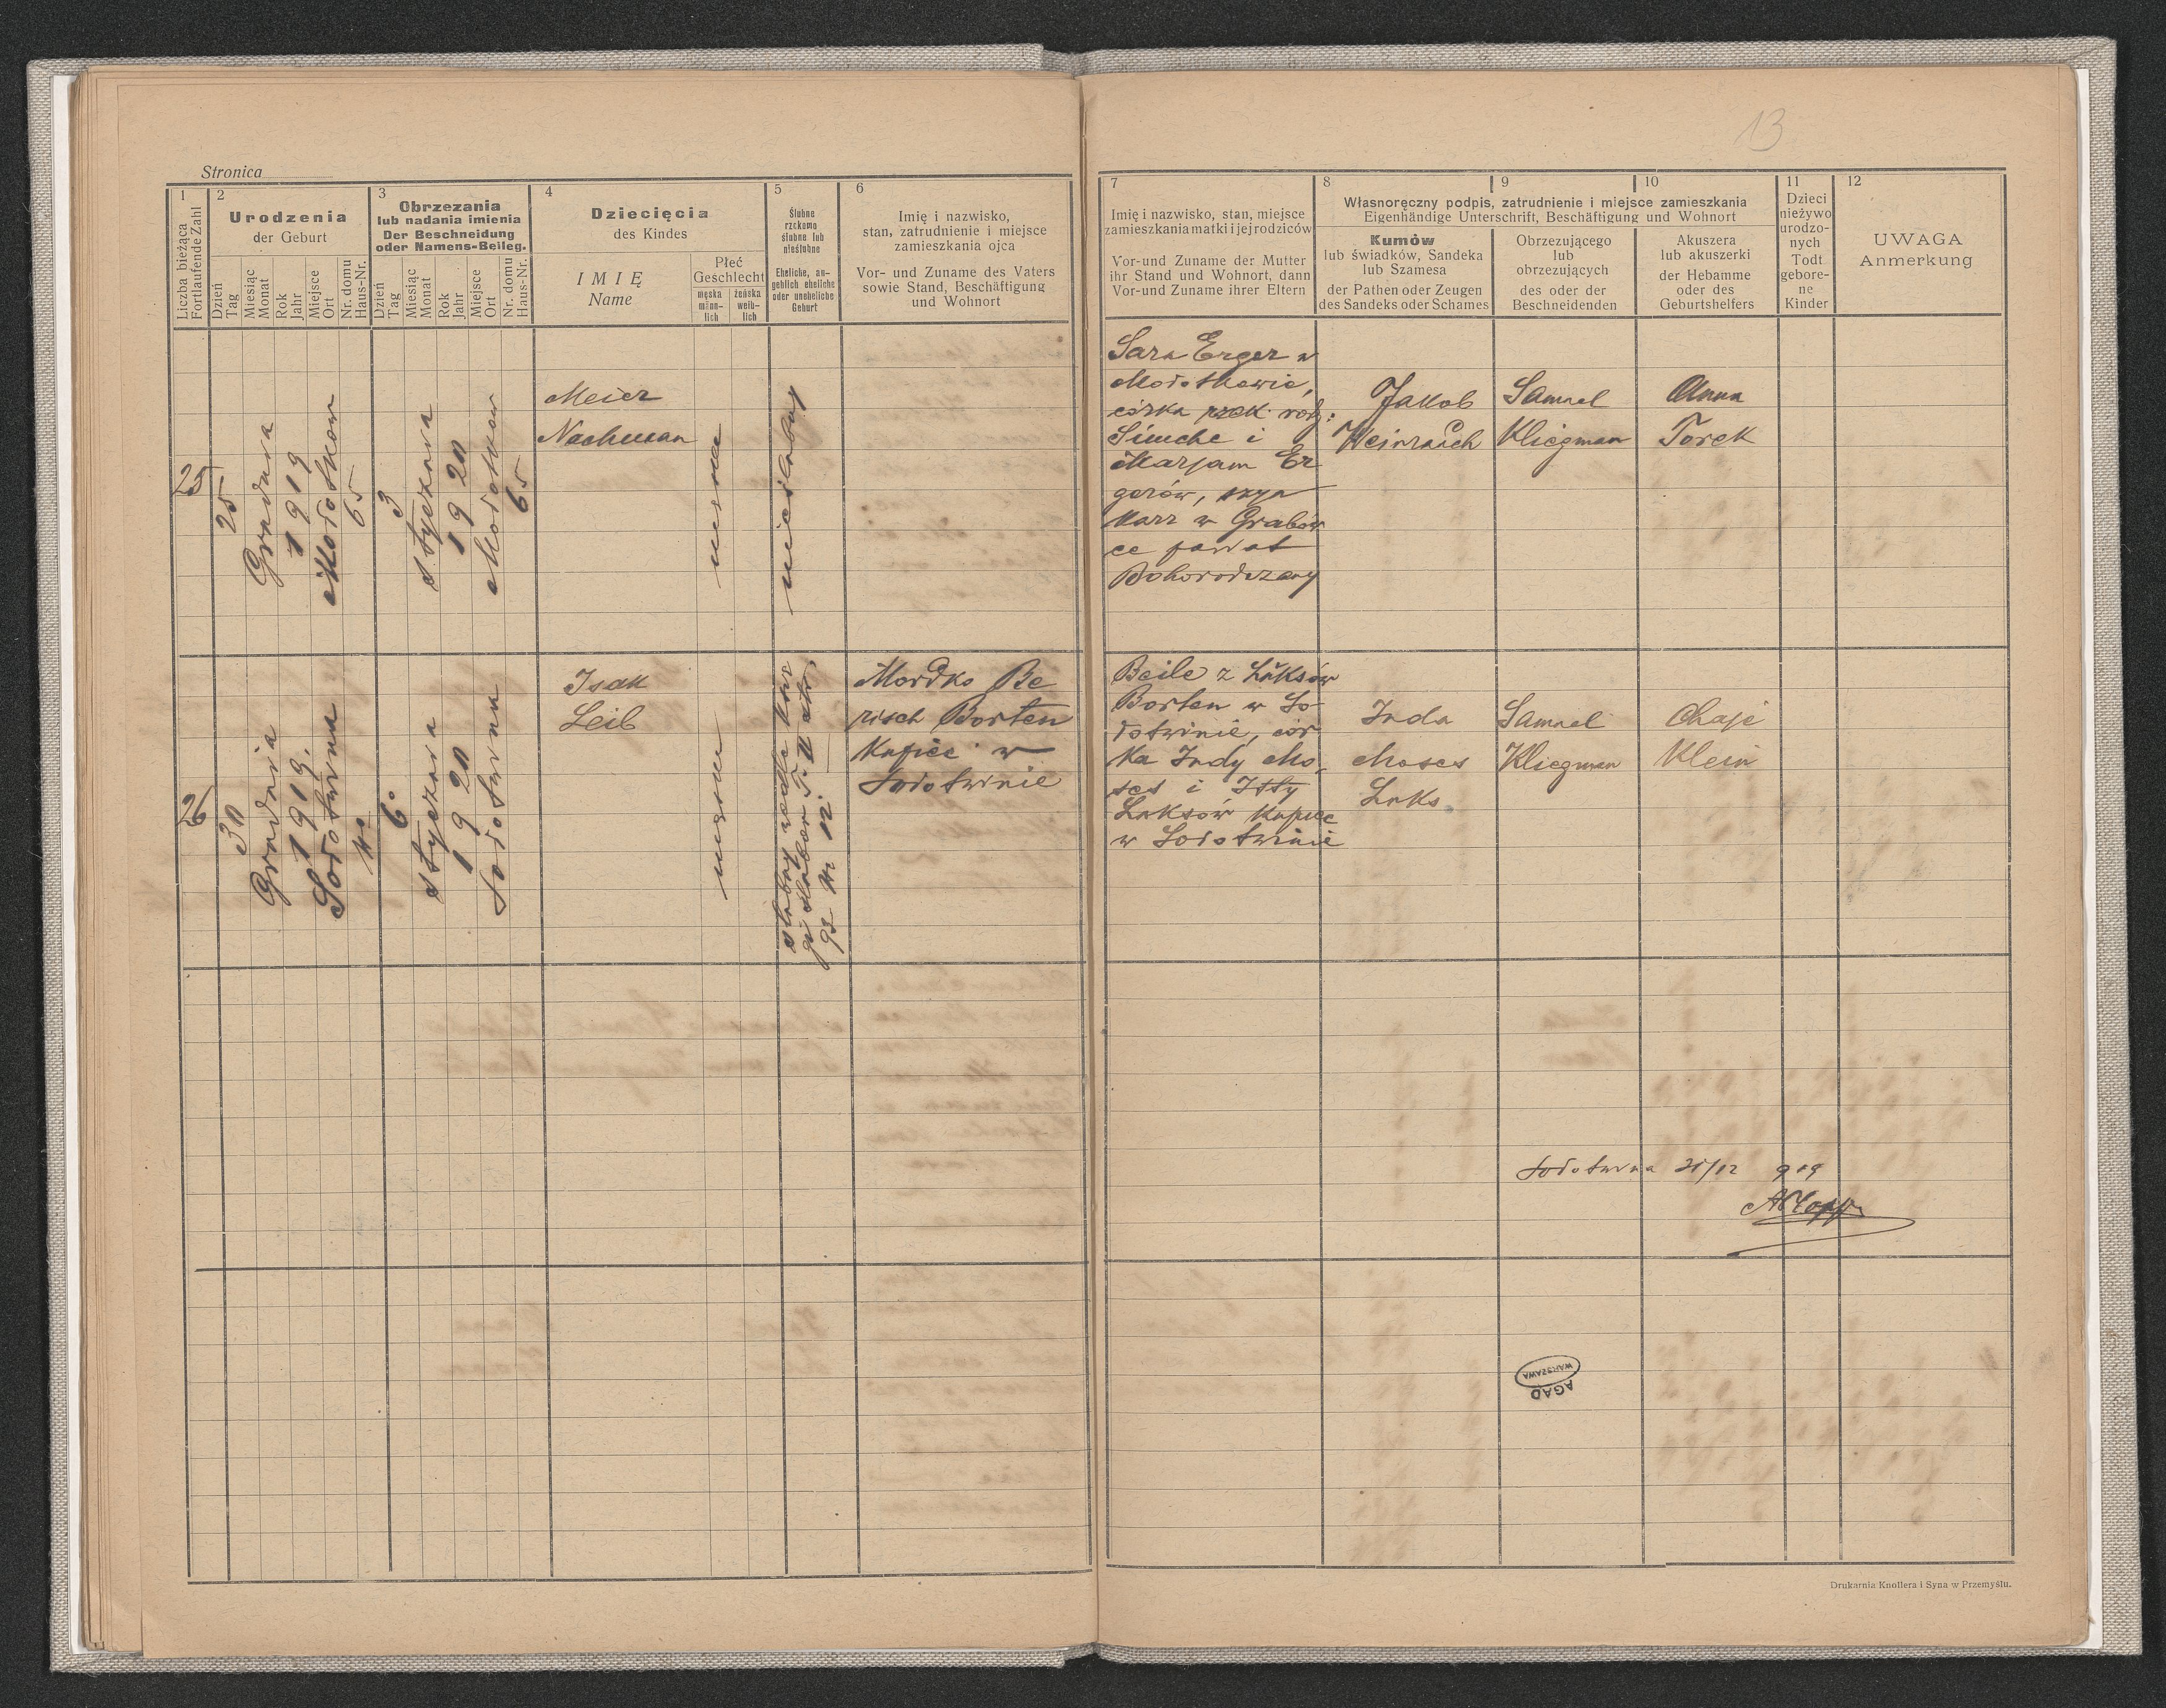 13
Stronica
1
Liczba bieżąca
Fortlaufende Zahl
2
Urodzenia
der Geburt
Dzień
Tag
Miesiąc
Monat
Rok
Jahr
Miejsce
Ort
Nr. domu
Haus-Nr.
3
Obrzezania
lub nadania imienia
Der Beschneidung
oder Namens-Beileg.
Dzień
Tag
Miesiąc
Monat
Rok
Jahr
Miejsce
Ort
Nr. domu
Haus-Nr.
4
Dziecięcia
des Kindes
IMIĘ
Name
Płeć
Geschlecht
męska
männ-
lich
żeńska
weib-
lich
5
Ślubne
rzekomo
ślubne lub
nieślubne
Eheliche, an-
geblich eheliche
oder uneheliche
Geburt
6
Imię i nazwisko,
stan, zatrudnienie i miejsce
zamieszkania ojca
Vor- und Zuname des Vaters
sowie Stand, Beschäftigung
und Wohnort
7
Imię i nazwisko, stan, miejsce
zamieszkania matki i jej rodziców
Vor- und Zuname der Mutter
ihr Stand und Wohnort, dann
Vor- und Zuname ihrer Eltern
8
9
10
Własnoręczny podpis, zatrudnienie i miejsce zamieszkania
Eigenhändige Unterschrift, Beschäftigung und Wohnort
Kumów
lub świadków, Sandeka
lub Szamesa
der Pathen oder Zeugen
des Sandeks oder Schames
Obrzezującego
lub
obrzezujących
des oder der
Beschneidenden
Akuszera
lub akuszerki
der Hebamme
oder des
Geburtshelfers
11
Dzieci
nieżywo
urodzo-
nych
Todt
gebore-
ne
Kinder
12
UWAGA
Anmerkung
25
25
Grudnia
1919
Mołotków
65
3
stycznia
1920
Mołotków
65
Meier
Nachman
męska
nieślubny
Sara Erger w
Mołotkowie,
córka rzek. rodz:
Simche i
Marjam Er
gerów, szyn
karz w Grabów
ce powiat
Bohorodczany
Jakob
Weinraich
Samuel
Kliegman
Anna
Torek
26
30
Grudnia
1919.
Sołotwina
6
stycznia
1920
Sołotwina
Isak
Leib
męska
ślubny wedle księ
gi ślubów T. II str.
93 Nr 12.
Mordko Be
risch Borten
Kupiec w
Sołotwinie
Beile z Luksów
Borten w So-
łotwinie, cór
ka Judy Mo-
ses i Itty
Luksów kupiec
w Sołotwinie
Juda
Moses
Luks
Samuel
Kliegman
Chaje
Klein
Sołotwina 31/12 919
AGAD
WARSZAWA
Drukarnia Knollera i Syna w Przemyślu.